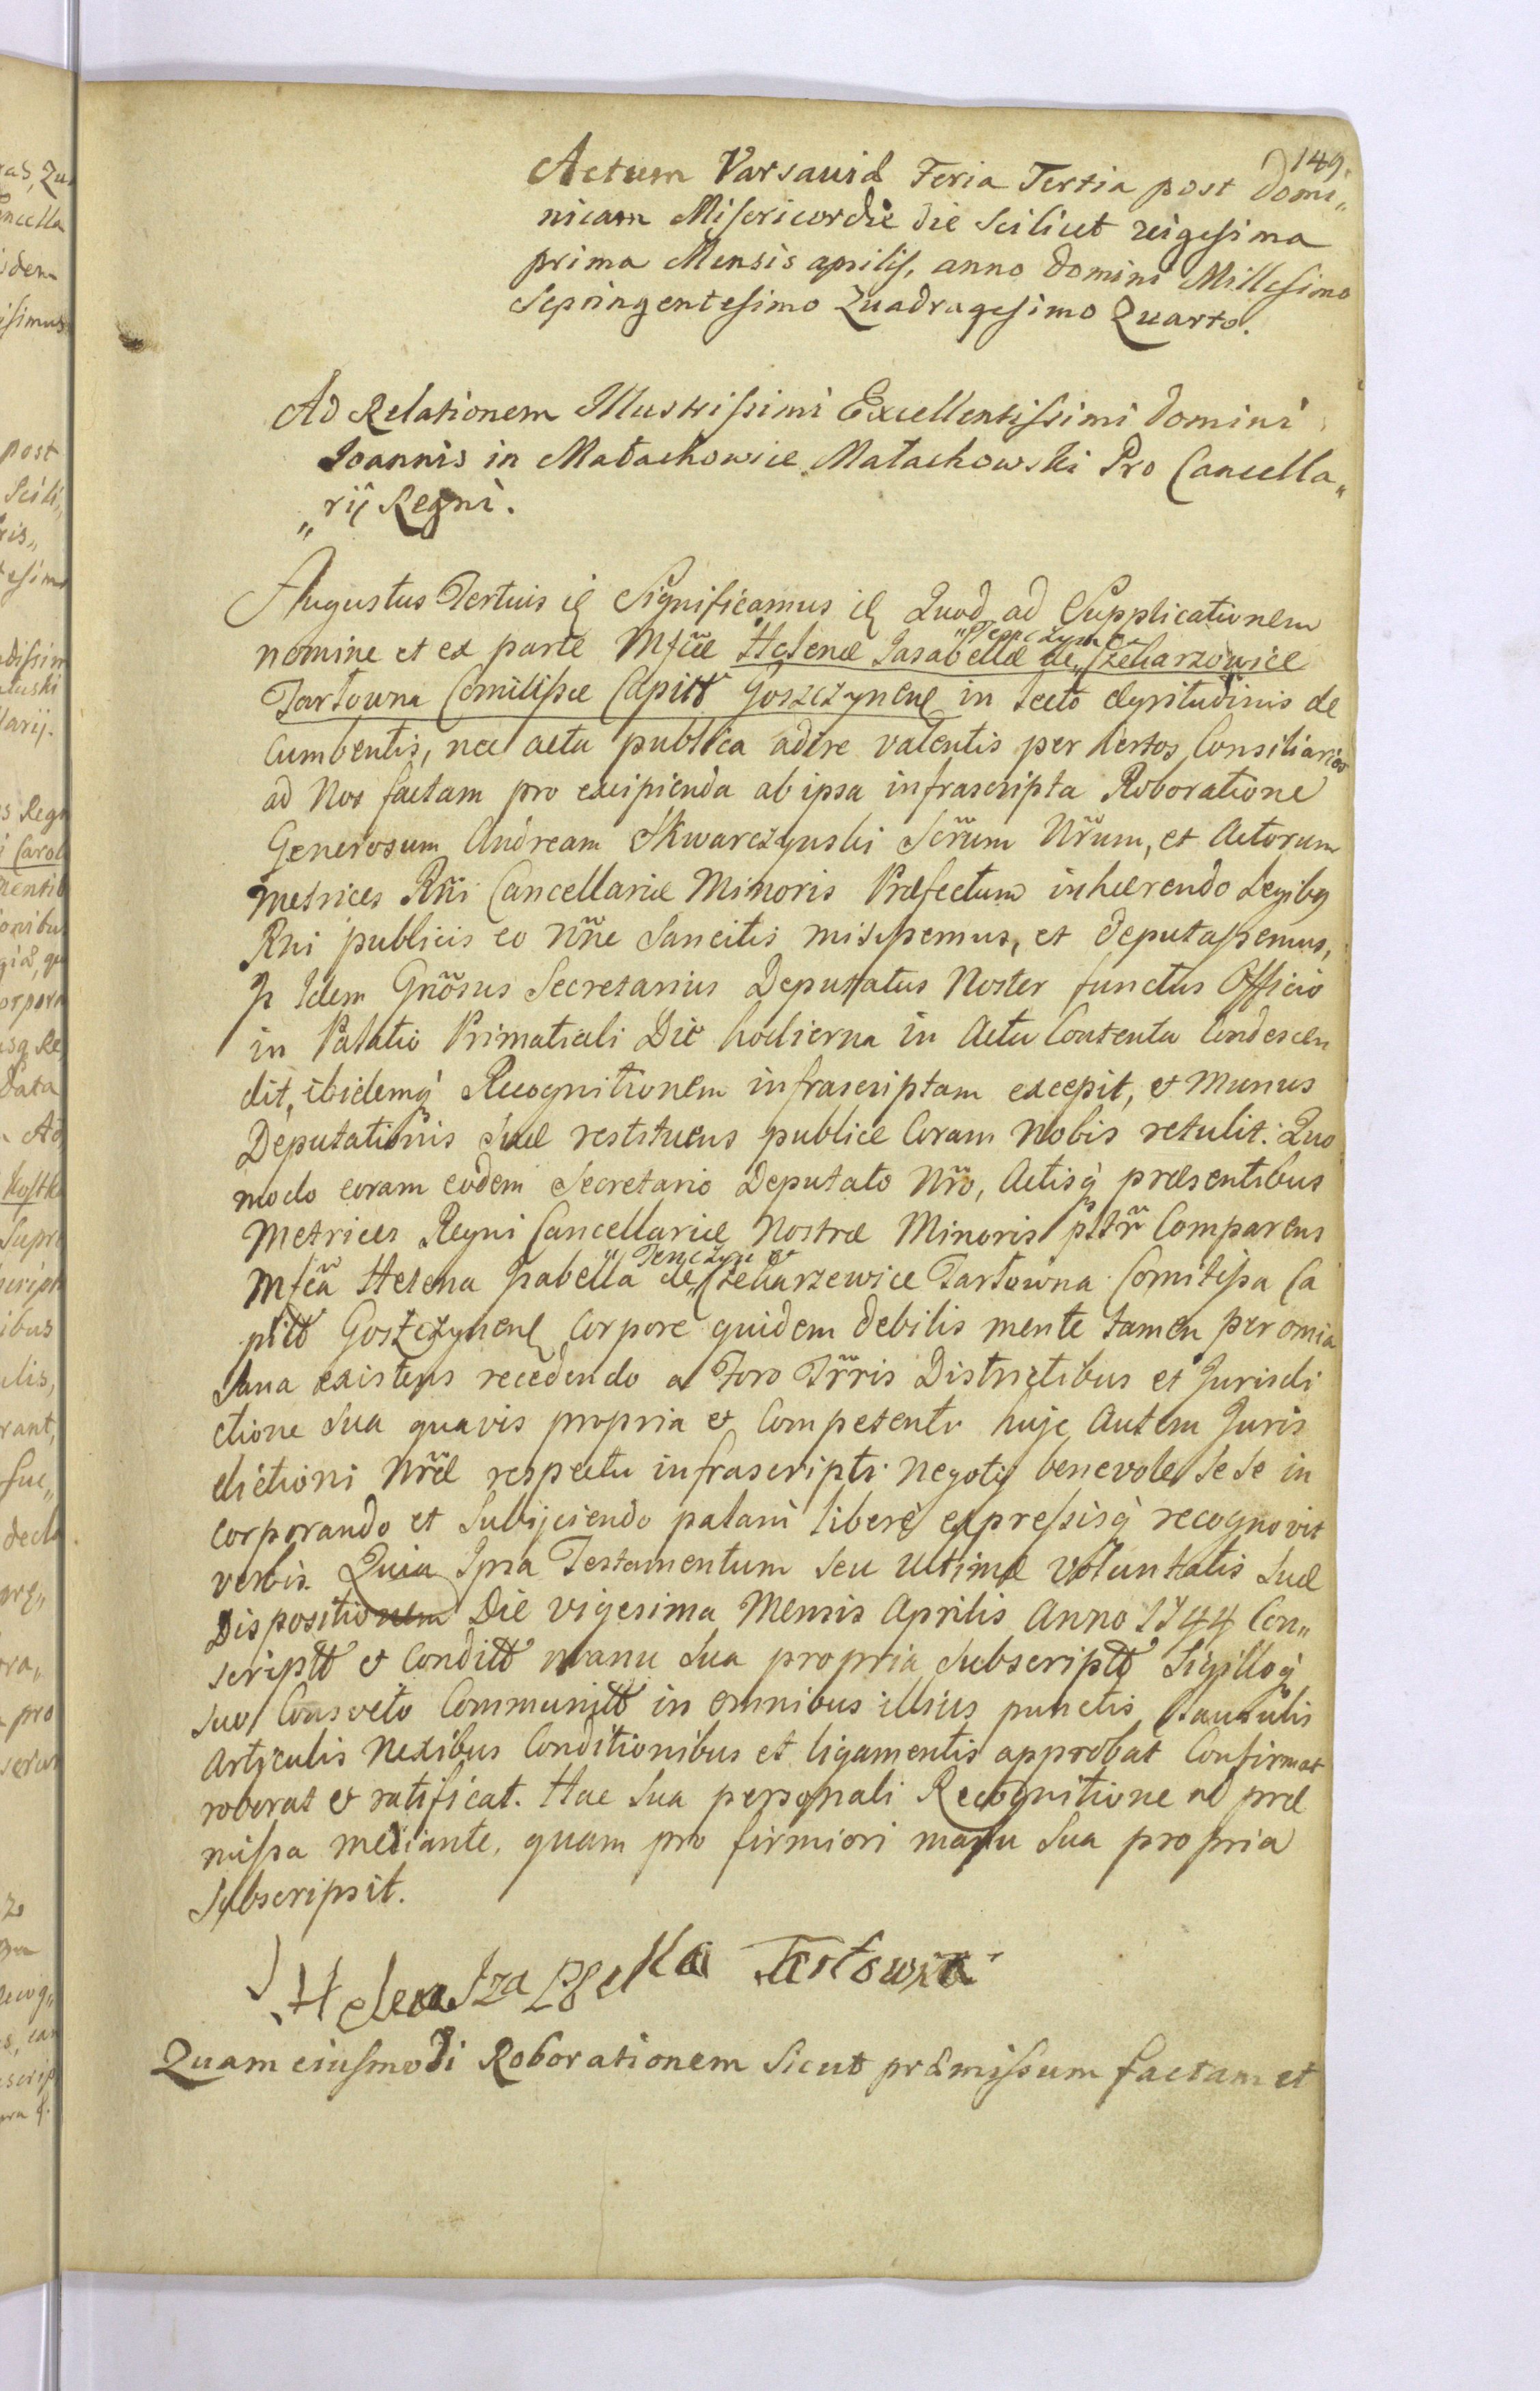 149.
Actum Varsaviæ Feria Tertia post Domi„
nicam Misericordiæ die scilicet vigesima
prima Mensis aprilis, anno Domini Millesimo
Septingentesimo Quadragesimo Quarto.
Ad Relationem Illustrissimi Excellentissimi Domini
Joannis in Małachowice Małachowski Pro Cancella„
„rij Regni.
Augustus Tertius Significamus Quod ad Supplicationem
nomine et ex parte Mfcæ Helenæ Jasabellæ de „Tenczyn et Czekarzowice
Tarłowna Comitissæ Capitt Goszczynen in lecto ægritudinis de
cumbentis, nec acta publica adire valentis per certos Consiliarios
ad Nos factam pro excipienda ab ipsa infrascripta Roboratione
Generosum Andream Skwarczynski Scrum Nrum, et Actorum
metrices Rni Cancellariæ Minoris Præfectum inhærendo Legibq
Rni publicis eo Nne sancitis misissemus, et deputassemus,
Idem Gnosus Secretarius Deputatus Noster functus Officio
in Palatio Primatiali Die hodierna in Actu Contenta Condescen
dit, ibidemq Recognitionem infrascriptam excepit, et munus
Deputationis suæ restituens publice Coram Nobis retulit: Quo
modo coram eodem Secretario Deputato Nro, Actisq præsentibus
Metrices Regni Cancellariæ Nostræ Minoris Comparens
Mfca Helena Jzabella de „Tenczyn et Czekarzewice Tarłowna Comitissa Ca
pitt Goszczynen Corpore quidem debilis mente tamen per omia
sana existens recedendo a Foro Trris Districtibus et Jurisdi
ctione sua quavis propria et Competenti huic Autem Juris
dictioni Nræ respectu infrascripti Negotij benevole se se in
corporando et Subijciendo palam libere expressisq recognovit
verbis. Quia Ipsa Testamentum seu ultimæ voluntatis suæ
Dispositionem Die vigesima Mensis Aprilis Anno 1744 Con„
scriptt et Conditt manu sua propria subscriptt Sigilloq
suo Consveto Communitt in omnibus illius punctis Clausulis
Articulis Nexibus Conditionibus et ligamentis approbat Confirmat
roborat et ratificat. Hac sua personali Recognitione ad præ
missa mediante, quam pro firmiori manu sua propria
subscripsit.
Helena Izabella Tarłowna
Quam eiusmodi Roborationem Sicut præmissum factam et